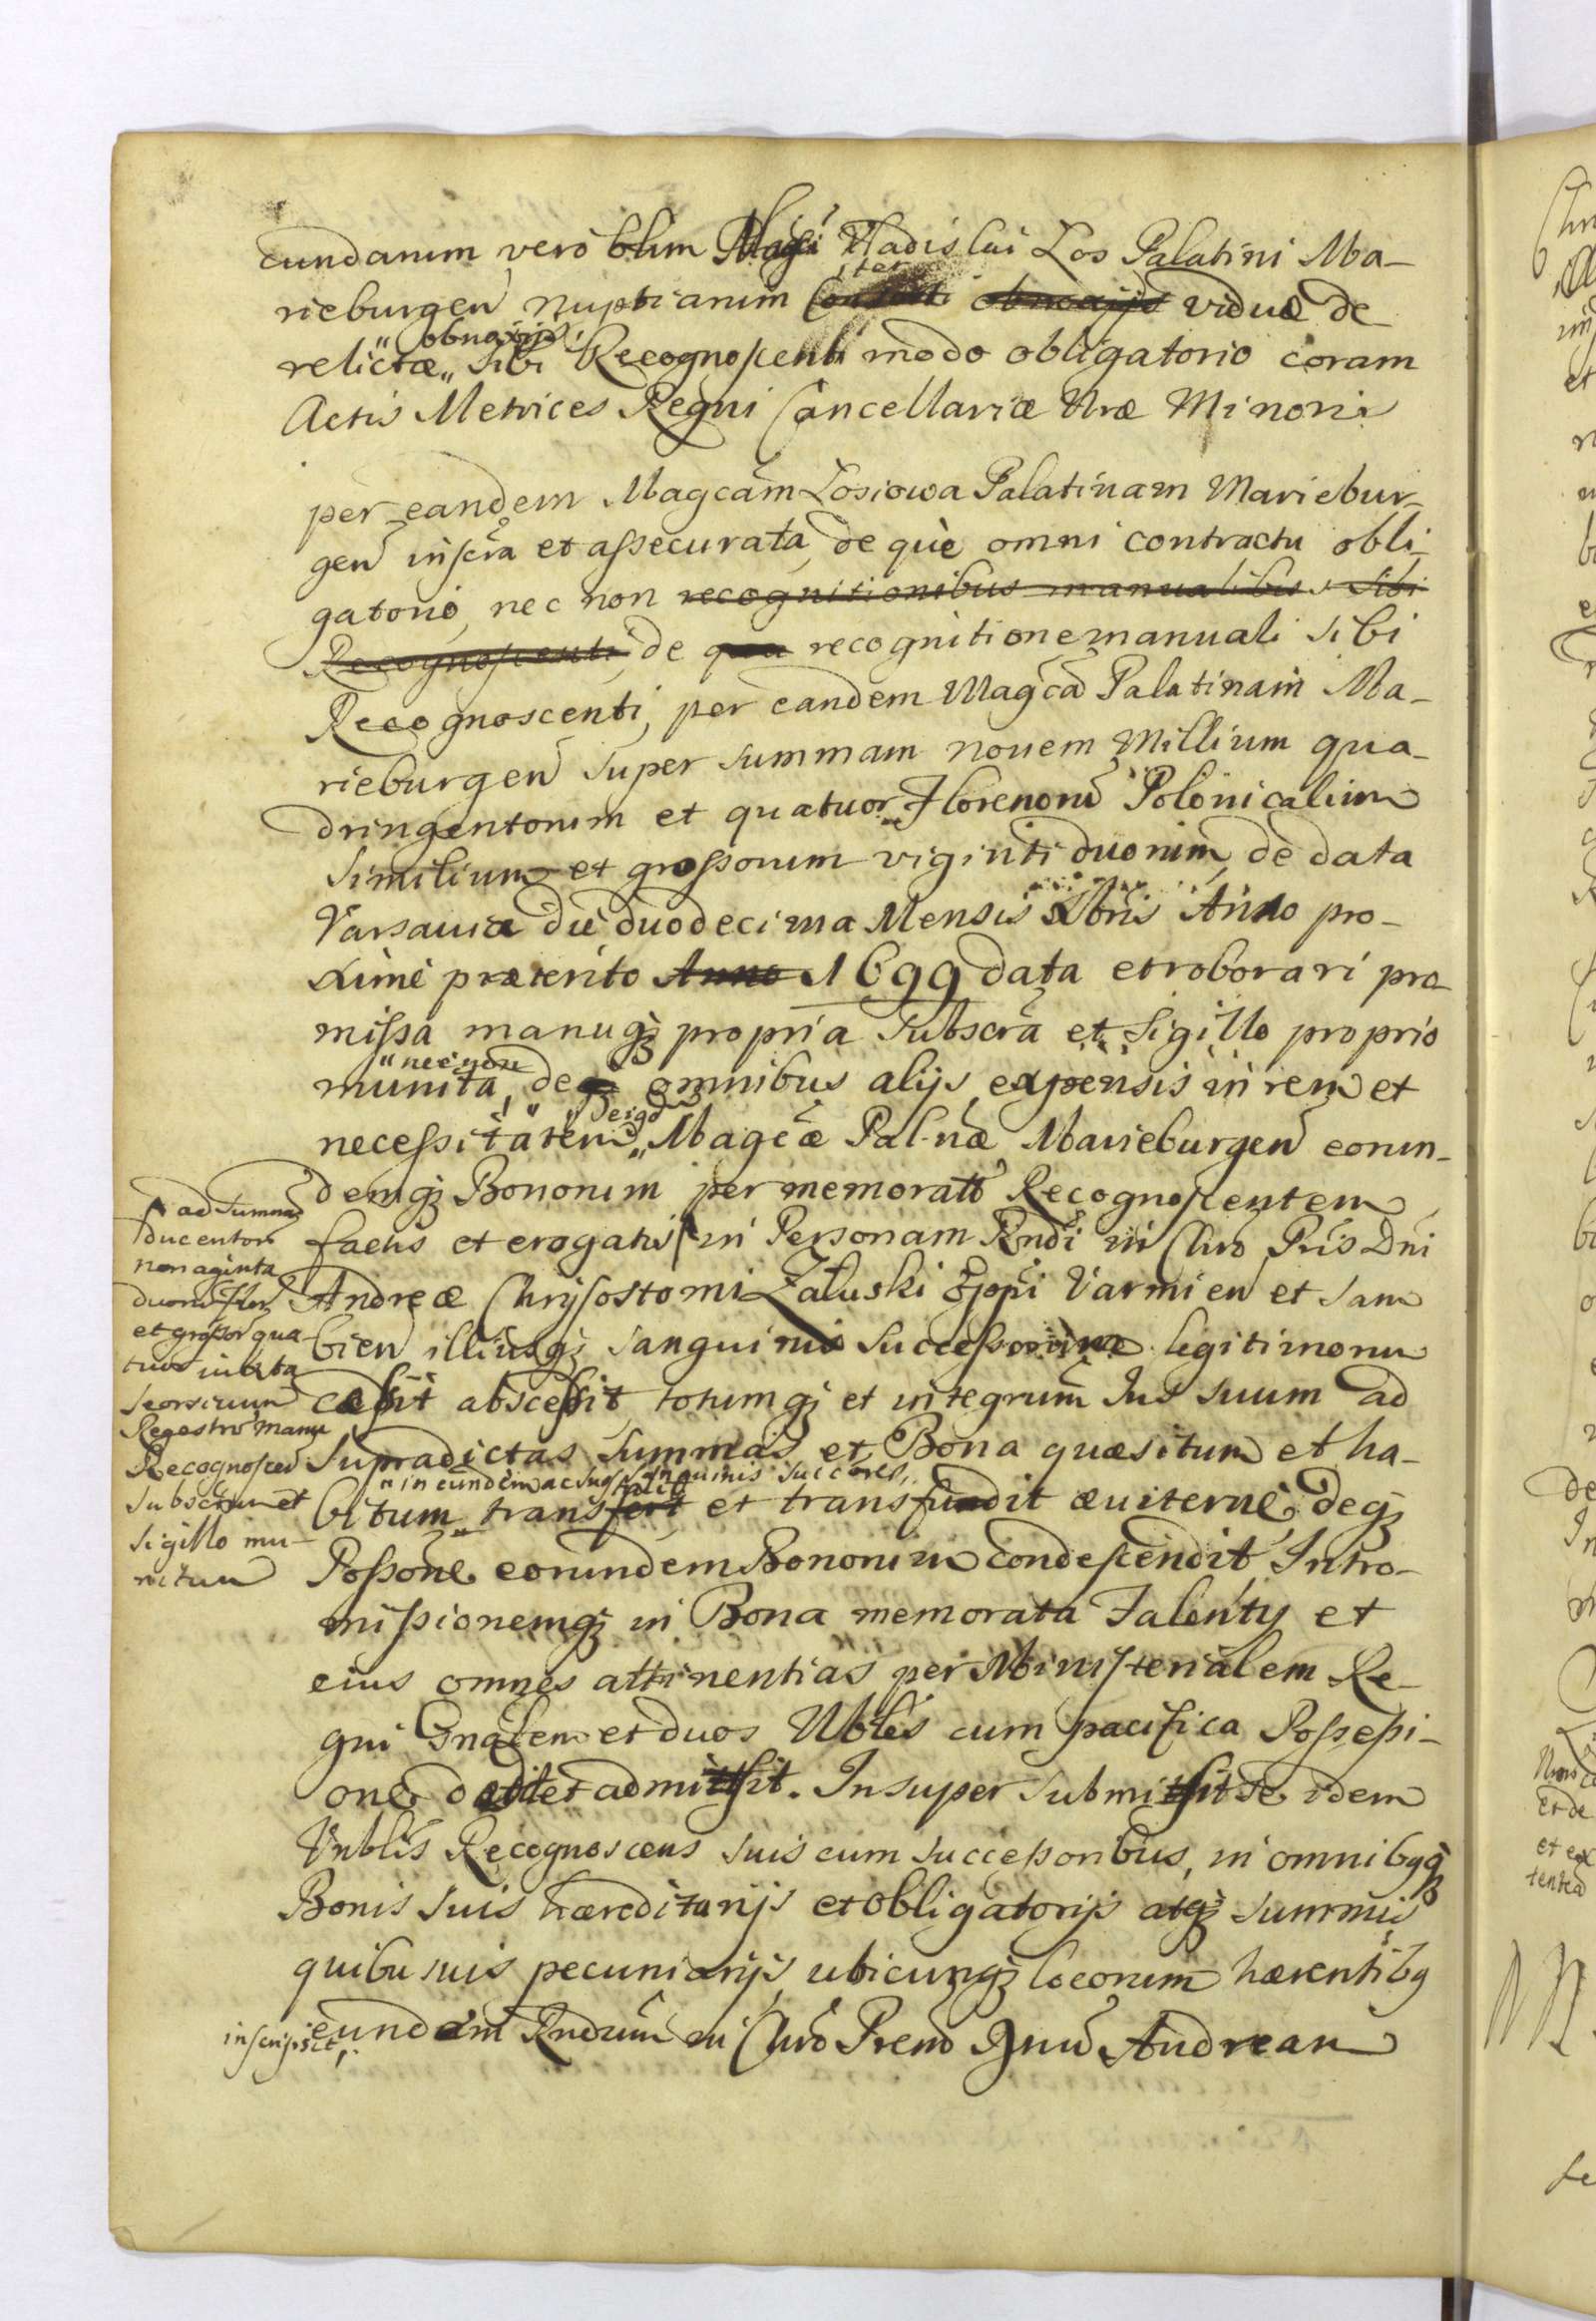 cundarum vero olim Magci Vladislai Los Palatini Ma-
rieburgen nuptiarum obnoxijs viduæ de
relictæ „obnoxijs„ sibi Recognoscenti modo obligatorio coram
Actis Metrices Regni Cancellariæ Nræ Minoris
per eandem Magcam Łosiowa Palatinam Mariebur-
gen inscra et assecurata, de què omni contractu obli-
gatorio, nec non recognitionibus manualibus sibi
Recognoscenti, de qua recognitione manuali sibi
Recognoscenti, per eandem Magcã Palatinam Ma-
rieburgen super summam novem Millium qua-
dringentorum et quatuor Florenorũ Polonicalium
similium et grossorum viginti duorum, de data
Varsaviæ die duodecima Mensis Xbris Anno pro-
xime præterito Anno 1699 data et roborari pro-
missa manuqꝫ propria subscra et sigillo proprio
munita, „nec non de omnibus alijs expensis in rem et
necessitatem „Magcæ Pal-næ Marieburgen eorun-
demqꝫ Bonorum per memoratũ Recognoscentem
factis et erogatis in Personam Rndi in Chro Pris Dni
Andreæ Chrysostomi Załuski Eppi Varmien et Sam
bien illiusqꝫ sanguinis successorum legitimorum
cessit abscessit totumqꝫ et integrum Jus suum ad
supradictas summas et Bona quæsitum et ha-
„in eundem ac suos sanguinis succores„
bitum transfert et transfundit æviterne, deqꝫ
Possone eorundem Bonorum condescendit Intro-
missionemqꝫ in Bona memorata Falenty et
eius omnes attinentias per Ministerialem Re-
gni Gnalem et duos Nobles cum pacifica Possessi-
one dedit et admisit. Insuper submisit se idem
Vrblis Recognoscens suis cum successoribus, in omnibqꝫ
Bonis suis hæreditarijs et obligatorijs atqꝫ summis
quibusuis pecuniarijs ubicunqꝫ locorum hærentibꝫ
inscripsit, eundem Rndum in Chro Prem Dnũ Andream
ad summã
ducentorũ
nonaginta
duorũ Flor
et grossor qua-
tuor iuxta
seorsivum
Regestrũ manu
Recognoscen
subscrum et
sigillo mu-
nitum